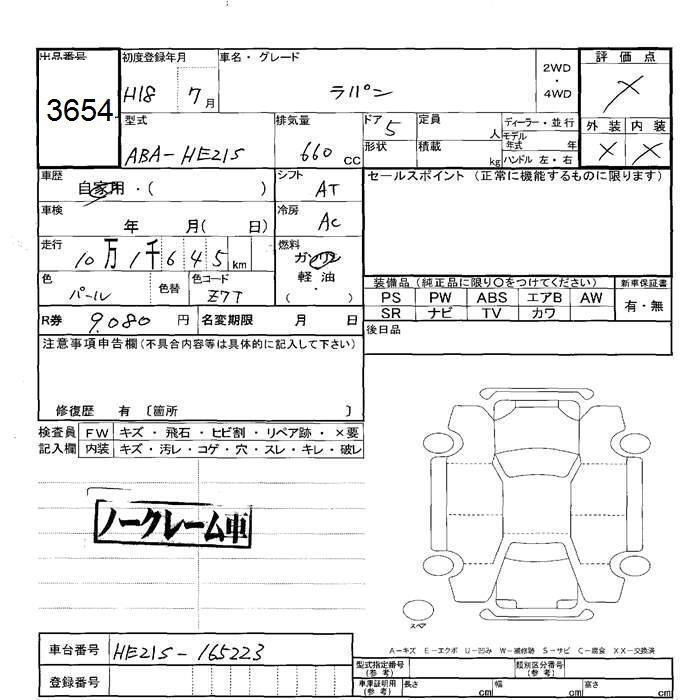 出品番号 初度登録年月 車名・グレード 評価点
3654 H18 7月 ラパン 2WD・4WD ×
型式 排気量 ドア 5 定員 人 ディーラー・並行 外装 内装
ABA-HE21S 660cc 形状 積載 kg モデル年式 年 × ×
ハンドル 左・右
車歴 自家用・( ) シフト AT セールスポイント(正常に機能するものに限ります)
車検 年 月( 日) 冷房 AC
走行 10万1千645km 燃料 ガソリン
軽油・( )
色 パール 色替 色コード Z7T 装備品(純正品に限り○をつけてください) 新車保証書
PS PW ABS エアB AW 有・無
SR ナビ TV カワ
R券 9.080円 名変期限 月 日 後日品
注意事項申告欄(不具合内容等は具体的に記入して下さい)
修復歴 有 〔箇所 〕
検査員 FW キズ・飛石・ヒビ割・リペア跡・×要
記入欄 内装 キズ・汚レ・コゲ・穴・スレ・キレ・破レ
ノークレーム車
スペア
A-キズ E-エクボ U-凹み W-補修跡 S-サビ C-腐食 XX-交換済
車台番号 HE21S-165223
型式指定番号(参考) 類別区分番号(参考)
登録番号
車庫証明用(参考) 長さ cm 幅 cm 高さ cm